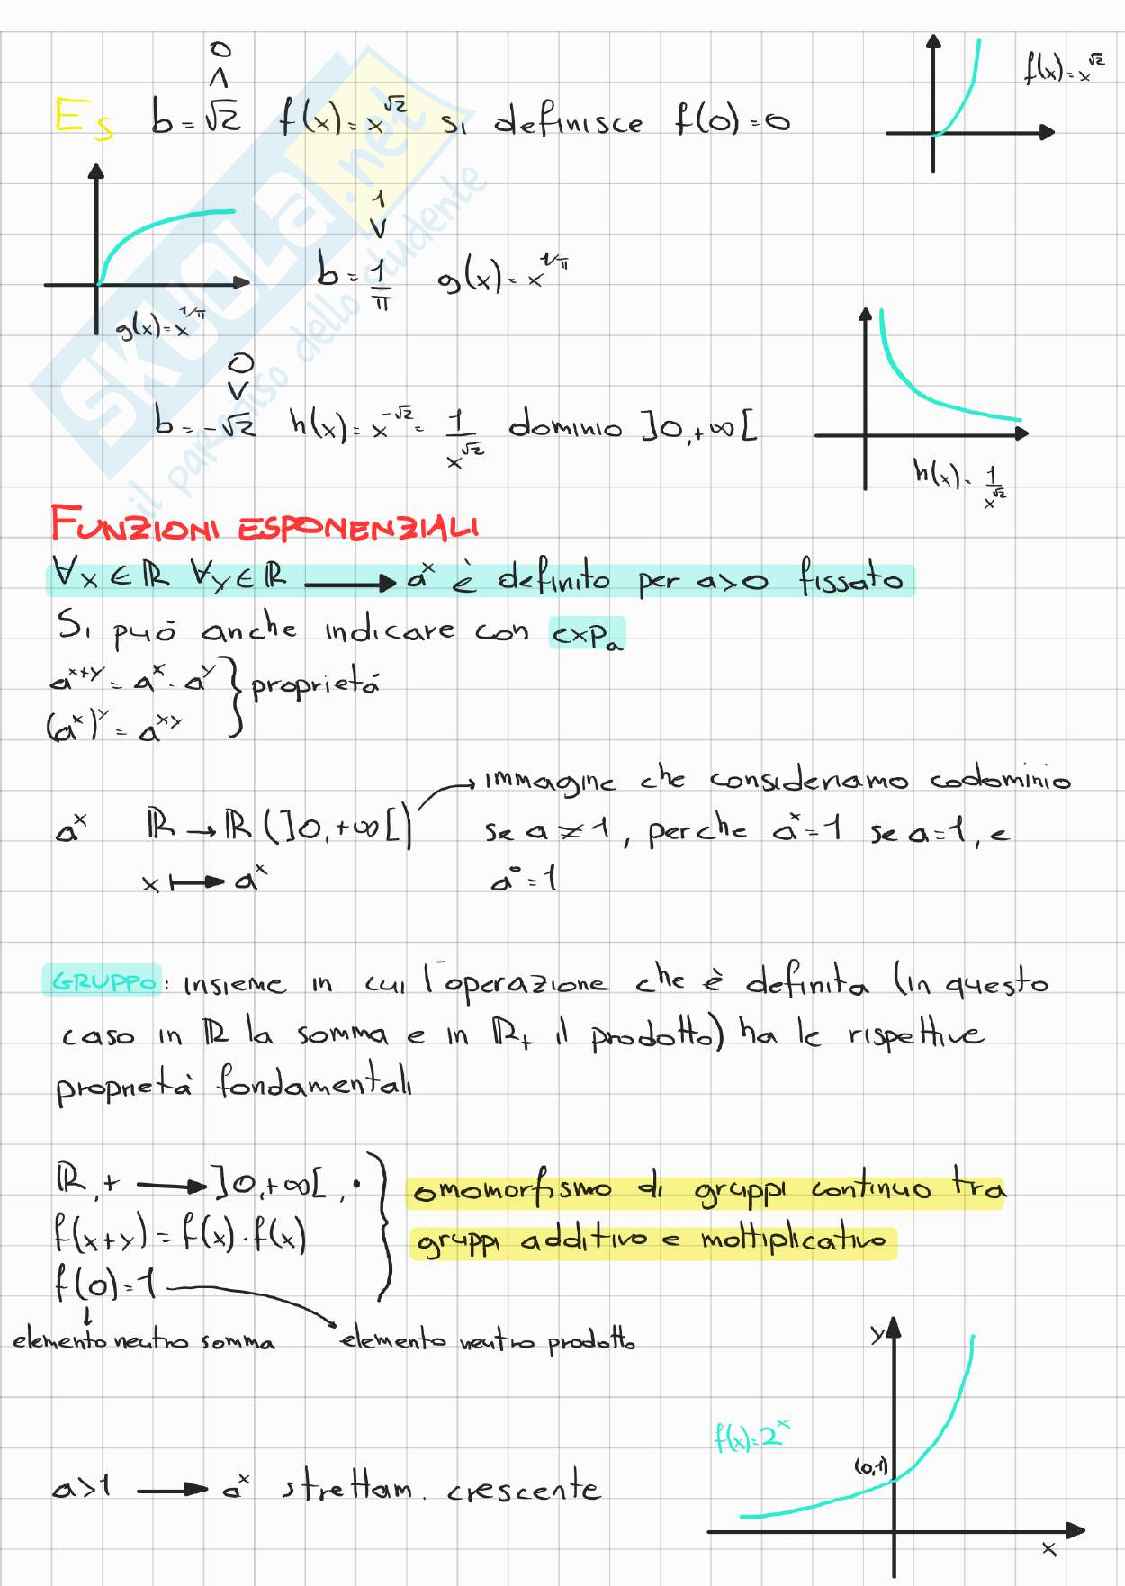 0
∧
Es b = √2 f(x) = x^√2 si definisce f(0) = 0
f(x) = x^√2
1
∨
b = 1/π g(x) = x^1/π
g(x) = x^1/π
0
∨
b = -√2 h(x) = x^-√2 = 1/x^√2 dominio ]0,+∞[
h(x) = 1/x^√2
FUNZIONI ESPONENZIALI
∀x ∈ ℝ ∀y ∈ ℝ → a^x è definito per a>0 fissato
Si può anche indicare con exp_a
a^x+y = a^x · a^y } proprietà
(a^x)^y = a^xy
→ immagine che consideriamo codominio
a^x ℝ → ℝ (]0,+∞[) se a ≠ 1, perche a^x = 1 se a = 1, e
x ↦ a^x a^0 = 1
GRUPPO: insieme in cui l'operazione che è definita (in questo
caso in ℝ la somma e in ℝ+ il prodotto) ha le rispettive
proprietà fondamentali
ℝ, + → ]0,+∞[ , · } omomorfismo di gruppi continuo tra
f(x+y) = f(x) · f(x) gruppi additivo e moltiplicativo
f(0) = 1
elemento neutro somma elemento neutro prodotto
y
f(x) = 2^x
(0,1)
a>1 → a^x strettam. crescente
x
SKUOLA.net
il paradiso dello studente